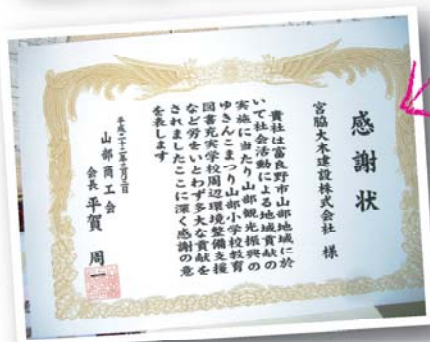 感謝状
宮脇土木建設株式会社 様
貴社は富良野市山部地域に於
いて社会活動による地域貢献の
実施に当たり山部観光振興の
ゆきんこまつり山部小学校教育
図書充実学校周辺環境整備支援
など労をいとわず多大な貢献を
されましたここに深く感謝の意
を表します
平成二十二年三月三日
山部商工会
会長 平賀 周一